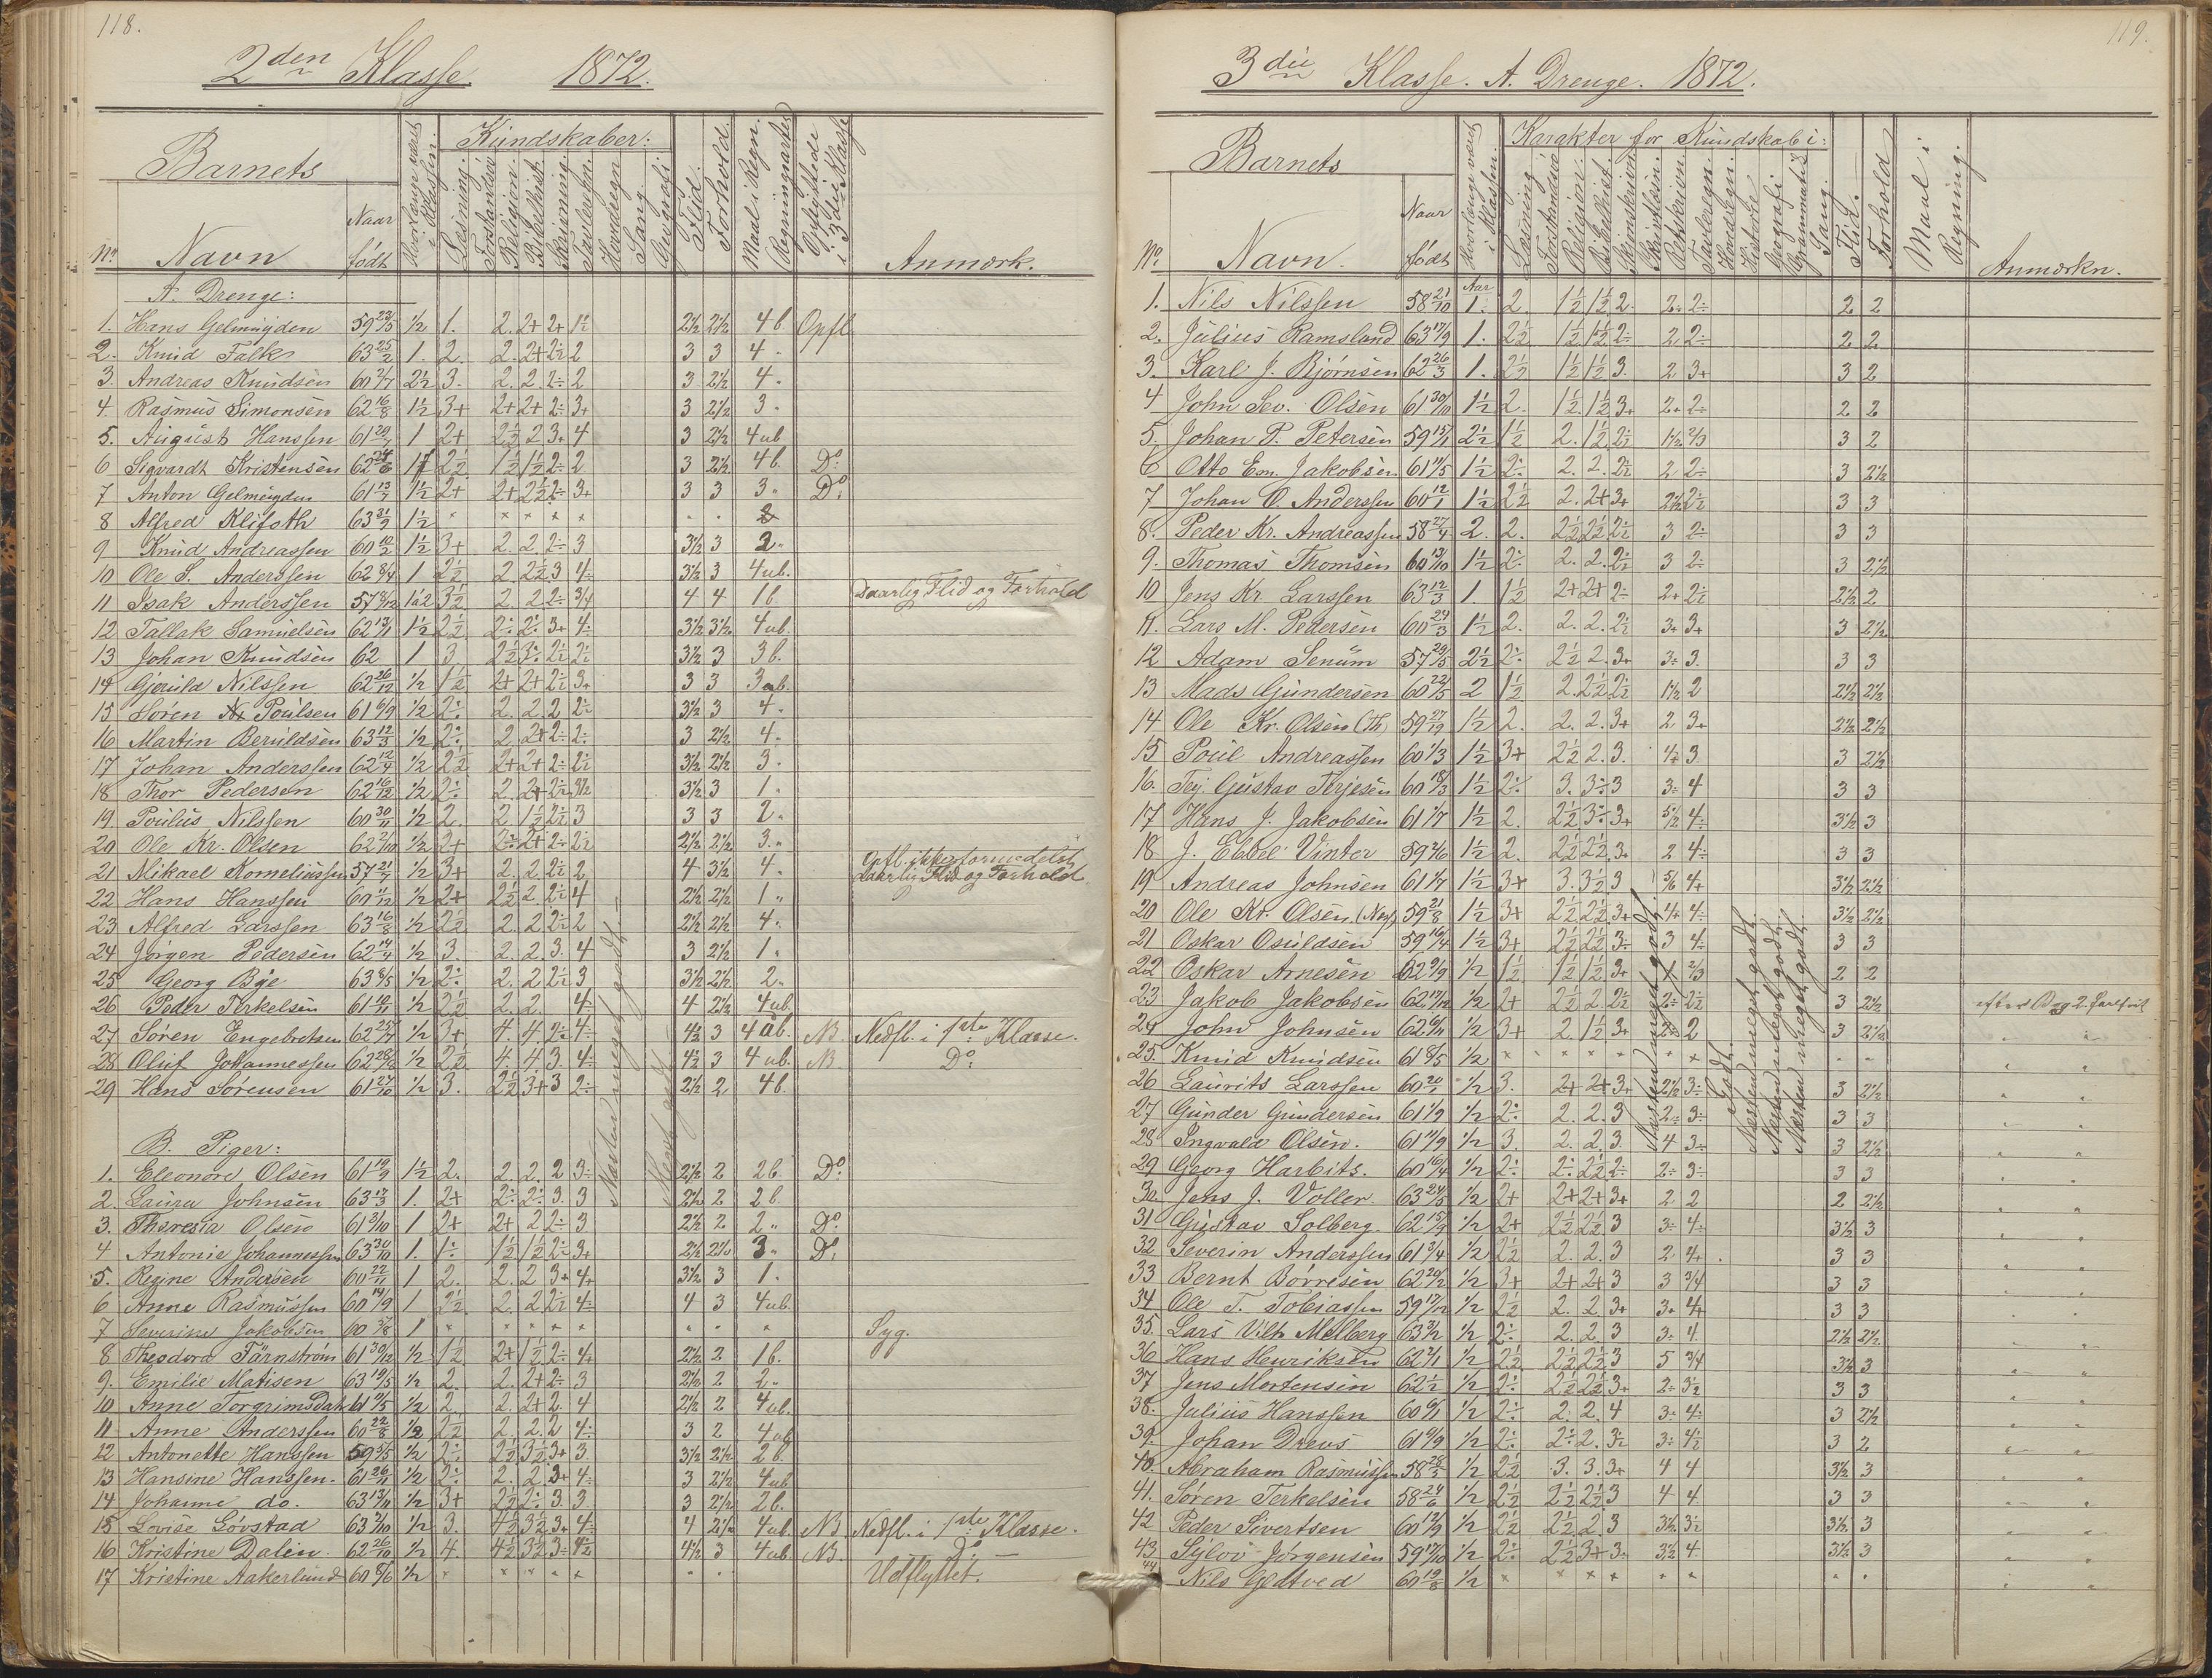 118.
2den Klasse 1872.
Barnets
Kundskaber:
No Navn
Naar født
Læsning
Religion
Bibelhist.
Skrivning
Tavleregn.
Hovedregn
Sang
Geografi
Flid.
Forhold.
Maal i Regn.
Anmærk.
A. Drenge:
1. Hans Gelmuyden 59 23/5 1/2 1. 2. 2+ 2+ 2 1/2 2 1/2 4 b Opfl.
2. Knud Falk 63 25/2 1. 2. 2. 2+ 2 3 3 4 "
3. Andreas Knudsen 60 2 1/2 3. 2. 2. 2÷ 2 3 2 1/2 4 "
4. Rasmus Simonsen 62 16/8 1 1/2 3+ 2+ 2+ 2÷ 3+ 3 2 1/2 3 "
5. August Hanssen 61 1 2+ 2 1/2 2 3+ 4 3 2 1/2 4 ub
6 Sigvardt Kristensen 62 2 1/2 1 1/2 1 1/2 2÷ 2 3 2 1/2 4 b. Do:
7 Anton Gelmuyden 61 1 1/2 2+ 2+ 2 1/2 2÷ 3+ 3 3 3 " Do:
8 Alfred Klifoth 63 1 1/2
9 Knud Andreassen 60 10/2 1 1/2 3+ 2. 2. 2÷ 3 3 1/2 3 2 "
10 Ole S. Anderssen 62 8/4 1 2 1/2 2. 2 1/2 3 4÷ 3 1/2 3 4 ub.
11 Isak Anderssen 57 3 1/2 2. 2. 2÷ 3/4 4 4 1 b Daarlig Flid og Forhold
12 Tallak Samuelsen 62 13/11 1 1/2 2 1/2 2÷ 2÷ 3+ 4÷ 3 1/2 3 1/2 4 ub.
13 Johan Knudsen 62 1 3 2 1/2 3÷ 3 1/2 3 3 b.
14 Gjeruld Nilssen 62 26/12 1/2 1 1/2 2+ 2+ 3+ 3 3 3 ub.
15 Søren Poulsen 61 6/9 1/2 2÷ 2. 2. 2 3 1/2 3 4 "
16 Martin Beruldsen 63 12/3 1/2 2÷ 2. 2+ 2÷ 2÷ 3 2 1/2 4 "
17 Johan Anderssen 62 12/4 1/2 2 1/2 2+ 2+ 2÷ 3 1/2 2 1/2 3 "
18 Thor Pedersen 62 16/12 1/2 2÷ 2. 2+ 3 1/2 3 1/2 3 1 "
19 Poulus Nilssen 60 30/11 1/2 2. 2 1 1/2 3 3 3 2 "
20 Ole Kr. Olsen 62 21/10 1/2 2+ 2÷ 2+ 2÷ 2 1/2 2 1/2 3 "
21 Mikael Korneliussen 57 1/2 3+ 2. 2. 2 4 3 1/2 4 " Opfl. ikke formedelst daarlig Flid og Forhold
22 Hans Hanssen 60 11/12 1/2 2+ 2 1/2 2. 4 2 1/2 2 1/2 1 "
23 Alfred Larssen 63 16/8 1/2 2 1/2 2. 2 2 2 1/2 2 1/2 4 "
24 Jørgen Pedersen 62 14/4 1/2 3. 2. 2. 3. 4 3 2 1/2 1 "
25 Georg Bye 63 8/5 1/2 2÷ 2. 2 3 3 1/2 2 1/2 2 "
26 Peder Terkelsen 61 10/11 1/2 2 1/2 2. 2. 4÷ 4 2 1/2 4 ub
27 Søren Engebretsen 62 1/2 3+ 4. 4. 2÷ 4÷ 4 1/2 3 4 ub. NB Nedfl. i 1ste Klasse.
28 Oluf Johannessen 62 1/2 2 1/2 4. 4 3. 4÷ 4 1/2 3 4 ub. NB Do:
29 Hans Sørensen 61 27/10 1/2 3. 2 1/2 3+ 3 2÷ 2 1/2 2 4 b.
Næsten meget godt
Meget godt
B. Piger:
1. Eleonore Olsen 61 19/9 1 1/2 2. 2. 2. 2 3÷ 2 1/2 2 2 b. Do:
2. Laura Johnsen 63 17/3 1. 2+ 2÷ 2÷ 3. 3 2 1/2 2 2 b.
3. Theresia Olsen 61 3/10 1 2+ 2+ 2 2÷ 3 2 1/2 2 2 " Do:
4 Antonie Johannessen 63 30/10 1. 1÷ 1 1/2 1 1/2 2÷ 3+ 2 1/2 2 1/2 3 " Do:
5. Regine Andersen 60 22/11 1 2. 2. 2 3+ 4+ 3 1/2 3 1 "
6 Anne Rasmussen 60 14/9 1 2 1/2 2. 2 4÷ 4 3 4 ub.
7 Severine Jakobsen 60 1 Syg.
8 Theodora Tärnstrøm 61 30/12 1/2 1 1/2 2+ 1 1/2 2÷ 4+ 2 1/2 2 1 b.
9. Emilie Matisen 63 19/5 1/2 2. 2. 2+ 2÷ 3 2 1/2 2 2 "
10 Anne Torgrimsdatr 61 1/2 2. 2. 2+ 2. 4 2 1/2 2 4 ub.
11 Anne Anderssen 60 22/8 1/2 2 1/2 2. 2. 2 4÷ 3 2 4 ub
12 Antonette Hanssen 59 1/2 2÷ 2 1/2 3 1/2 3+ 3. 3 1/2 2 1/2 2 b.
13 Hansine Hanssen 61 26/11 1/2 2÷ 2. 2. 3+ 4÷ 3 2 1/2 4 ub
14 Johanne do. 63 13/11 1/2 3+ 2 1/2 2÷ 3. 3. 3 2 1/2 2 b.
15 Lovise Løvstad 63 1/2 3. 4 1/2 3 1/2 3+ 4÷ 4 2 1/2 4 ub. NB Nedfl. i 1ste Klasse.
16 Kristine Dalin 62 26/10 1/2 4. 4 1/2 3 1/2 3÷ 4 1/2 4 1/2 3 4 ub. NB. Do
17 Kristine Aakerlund 60 1/2 Udflyttet.
119.
3die Klasse. A. Drenge. 1872.
Barnets
Karakter for Kundskab i:
No. Navn.
Naar født
Hvorlænge været i Klassen.
Læsning
Forstandsø
Religion.
Bibelhist.
Skjønskrivn.
Retskrivn.
Tavleregn.
Hovedregn.
Historie
Geografi
Grammatik
Sang.
Flid.
Forhold
Maal i Regning.
Anmærkn.
1. Nils Nilssen 58 21/10 Aar 1. 2. 1 1/2 1 1/2 2. 2÷ 2÷ 2 2
2. Julius Ramsland 63 17/9 1. 2 1/2 1 1/2 1 1/2 2÷ 2 2÷ 2 2
3. Karl J. Bjørnsen 62 26/3 1. 2 1/2 1 1/2 1 1/2 3. 2 3+ 3 2
4 John Sev. Olsen 61 30/10 1 1/2 2. 1 1/2 1 1/2 3+ 2+ 2÷ 2 2
5. Johan P. Petersen 59 15/11 2 1/2 1 1/2 2. 1 1/2 1 1/2 2/3 3 2
6 Otto Em. Jakobsen 61 1 1/2 2÷ 2. 2. 2 2÷ 3 2 1/2
7 Johan O. Anderssen 60 12/1 1 1/2 2 1/2 2. 2+ 3+ 2 1/2 3 3
8. Peder Kr. Andreassen 58 27/4 2. 2. 2 1/2 2 1/2 3 2÷ 3 3
9. Thomas Thomsen 60 13/10 1 1/2 2÷ 2. 2. 3 2÷ 3 2 1/2
10 Jens Kr. Larssen 63 12/3 1 1 1/2 2+ 2+ 2÷ 2+ 2 1/2 2
11. Lars M. Pedersen 60 24/3 1 1/2 2. 2. 2. 3+ 3+ 3 2 1/2
12 Adam Senum 57 29/5 2 1/2 2÷ 2 1/2 2. 3+ 3÷ 3. 3 3
13 Mads Gundersen 60 2 1 1/2 2. 2 1/2 1 1/2 2 2 1/2 2 1/2
14 Ole Kr. Olsen (Th) 59 1 1/2 2. 2. 2. 3+ 2 3+ 2 1/2 2 1/2
15 Poul Andreassen 60 1/3 1 1/2 3+ 2 1/2 2. 3. 3 3 2 1/2
16. Tej. Gustav Terjesen 60 18/3 1 1/2 2÷ 3. 3÷ 3 3÷ 4 3 3
17 Hans J. Jakobsen 61 1/7 1 1/2 2. 2 1/2 3÷ 3+ 4÷ 3 1/2 3
18 J. Ebbel Vinter 59 1 1/2 2. 2 1/2 2 1/2 3+ 2 4÷ 3 3
19 Andreas Johnsen 61 1/7 1 1/2 3+ 3. 3 1/2 3 5/6 4+ 3 1/2 2 1/2
20 Ole Kr. Olsen (Næs) 59 21/8 1 1/2 3+ 2 1/2 2 1/2 3+ 4+ 4÷ 3 1/2 2 1/2
21 Oskar Osuldsen 59 16/4 1 1/2 3+ 2 1/2 2 1/2 3÷ 3 4÷ 3 3
22 Oskar Arnesen 62 9/9 1/2 1 1/2 1 1/2 1 1/2 3+ 1 2/3 2 2
23 Jakob Jakobsen 62 17/12 1/2 2+ 2 1/2 2 2÷ 3 2 1/2 efter Bog 2.
24 John Johnsen 62 1/2 3+ 2. 1 1/2 3+ 2 3 2 1/2 " "
25. Knud Knudsen 61 8/5 1/2 " "
26 Laurits Larssen 60 1/2 3. 2+ 2+ 3+ 2 1/2 3÷ 3 2 1/2 " "
27 Gunder Gundersen 61 1/9 1/2 2÷ 2. 2. 3 2÷ 3÷ 3 3 " "
28 Ingvald Olsen. 61 1/2 3. 2. 2. 3. 4 3÷ 3 2 1/2 " "
29 Georg Harbits. 60 16/4 1/2 2÷ 2÷ 2 1/2 2÷ 2÷ 3÷ 3 3 " "
30 Jens J. Voller 63 24/5 1/2 2+ 2+ 2+ 3+ 2 2 2 2 1/2 " "
31 Gustav Solberg 62 15/9 1/2 2+ 2 1/2 2 1/2 3 3÷ 4÷ 3 1/2 3 " "
32 Severin Anderssen 61 3/4 1/2 2 1/2 2. 2. 3 2 4+ 3 3 " "
33 Bernt Børresen 62 1/2 3+ 2+ 2+ 3 3 3/4 3 3 " "
34 Ole T. Tobiassen 59 17/12 1/2 2 1/2 2. 2 3+ 3+ 4+ 3 3 " "
35. Lars Vilh. Melberg 63 1/2 2÷ 2. 2. 3 3÷ 4. 2 1/2 2 1/2 " "
36 Hans Henriksen 62 1/2 2 1/2 2 1/2 2 1/2 3 5 3/4 3 1/2 3 " "
37 Jens Mortensen 62 1/2 1/2 2÷ 2 1/2 2 1/2 3+ 2÷ 3 1/2 3 3 " "
38. Julius Hanssen 60 1/2 2÷ 2. 2. 4 3÷ 4÷ 3 2 1/2 " "
39 Johan Drews 61 9/9 1/2 2÷ 2÷ 2. 3÷ 4 1/2 3 2 " "
40. Abraham Rasmussen 58 1/2 2 1/2 3. 3. 3+ 4 4 3 1/2 3 " "
41. Søren Terkelsen 58 24/6 1/2 2 1/2 2 1/2 2 1/2 3 4 4 3 3 " "
42 Peder Sivertsen 60 12/9 1/2 2 1/2 2 1/2 2. 3 3 1/2 3 1/2 3 1/2 3 " "
43 Sylov Jørgensen 59 17/10 1/2 2÷ 2 1/2 3+ 3÷ 3 1/2 4 3 1/2 3 " "
44 Nils Gjeltved 60 19/8 1/2 " "
Næsten meget godt.
Godt.
Næsten meget godt.
Næsten meget godt.
Næsten meget godt.